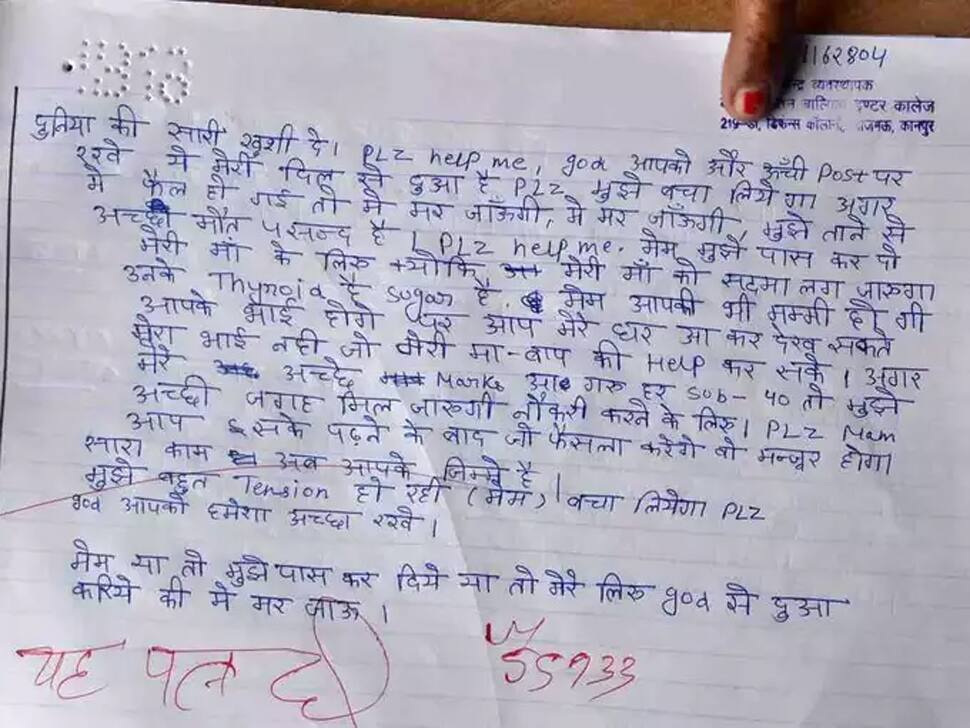 1162804
व्यवस्थापक
इण्टर कालेज
219 कानपुर
दुनिया की सारी खुशी दे। PLZ help me, god आपको और ऊँची Post पर
रखे ये मेरी दिल से दुआ है PLZ मुझे बचा लिये गा अगर
मे फैल हो गई तो मे मर जाँऊगी, मे मर जाँऊगी, मुझे ताने से
अच्छी मौत पसन्द है। PLZ help me. मेम मुझे पास कर दो
मेरी माँ के लिए क्योकि मेरी माँ को सदमा लग जाएगा
उनके Thyroid है sugar है. मेम आपकी भी मम्मी हो गी
आपके भाई होगे पर आप मेरे घर आ कर देख सकते
मेरा भाई नही जो मेरी मा-बाप की Help कर सके। अगर
मेरे अच्छे Marks आ गए हर sub- 40 तो मुझे
अच्छी जगह मिल जाएगी नौकरी करने के लिए। PLZ Mam
आप इसके पढ़ने के बाद जो फैसला करेगे वो मन्जूर होगा
सारा काम अब आपके जिम्मे है।
मुझे बहुत Tension हो रही (मेम) बचा लियेगा PLZ
god आपको हमेशा अच्छा रखे।
मेम या तो मुझे पास कर दिये या तो मेरे लिए god से दुआ
करिये की मे मर जाऊ।
यह पत्र
55933